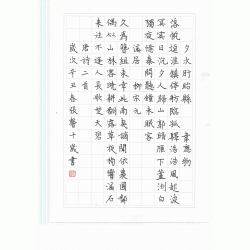 夕次盱眙縣 韋應物
落帆逗淮鎮停舫臨孤驛浩浩風起波
冥冥日沉夕人歸山郭暗雁下蘆洲白
獨夜憶秦關聽鐘未眠客
溪居 柳宗元
久為簪組束幸此南夷謫閒依農圃鄰
偶似山林客曉耕翻露草夜榜響溪石
來往不逢人長歌楚天碧
唐詩二首
歲次辛丑春張馨十歲書